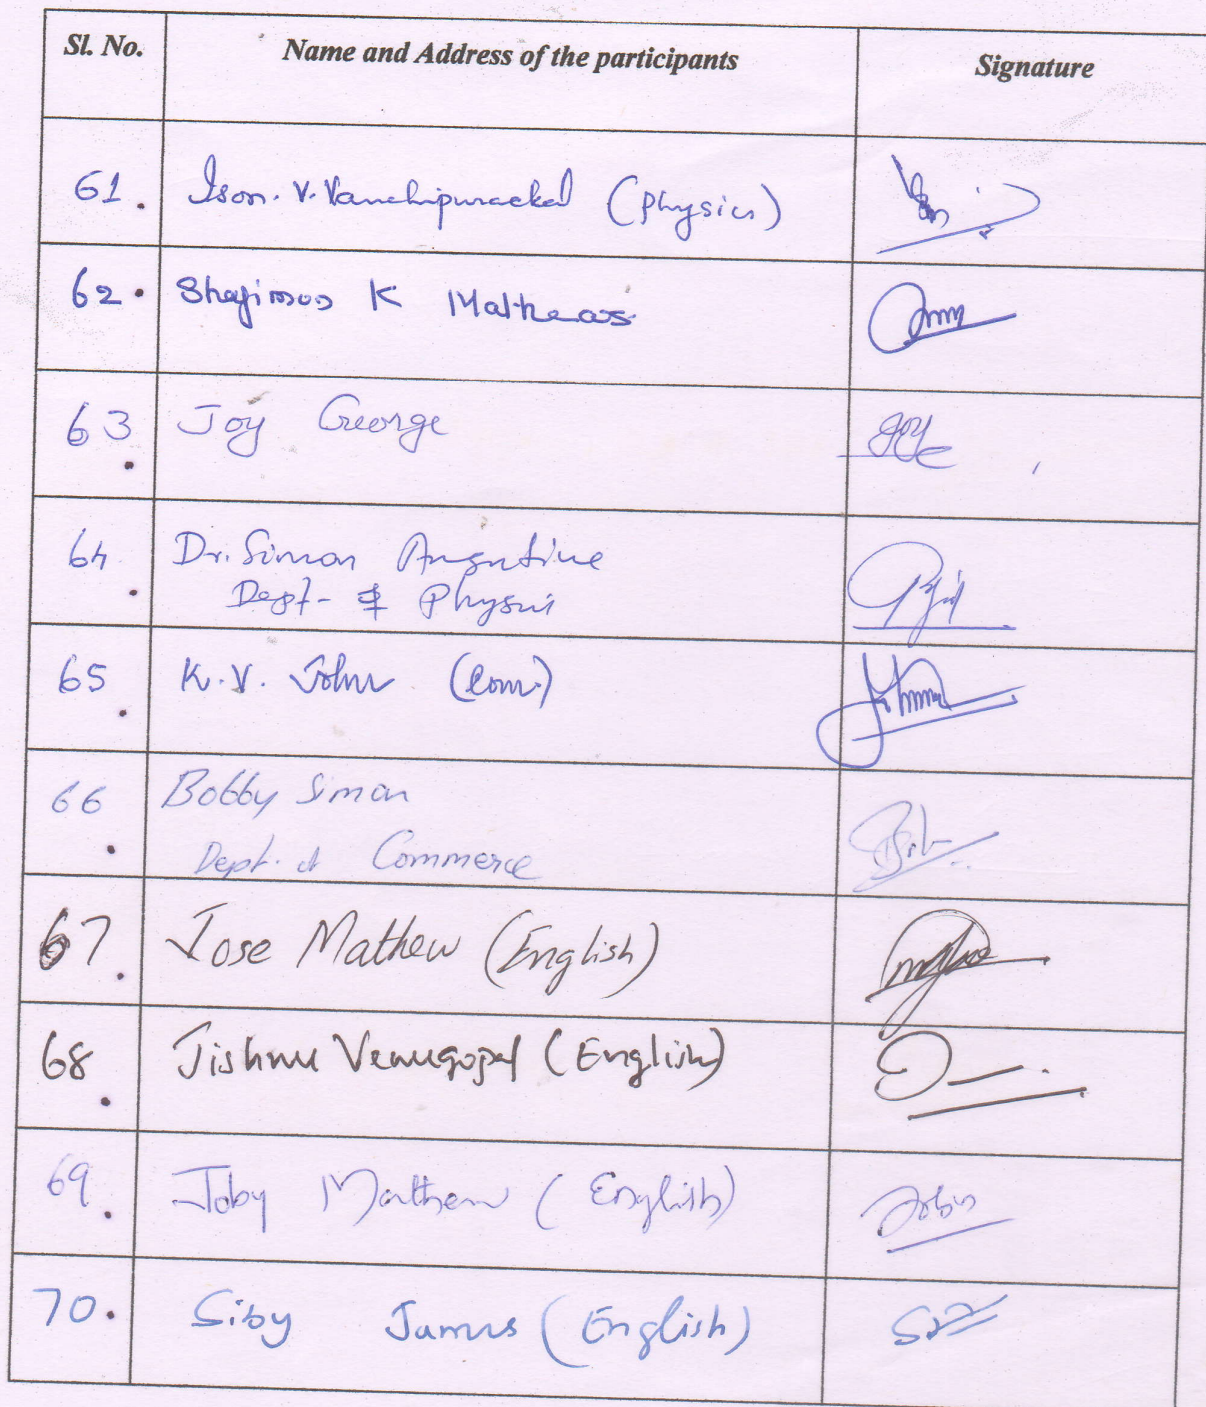 Sl. No. Name and Address of the participants Signature
61. Ison. V. Vanchipurackal (Physics)
62. Shajimon K Mathews
63. Joy George Joy
64. Dr. Simon Augustine
Dept. of Physics
65. K.V. John (Com.)
66. Bobby Simon
Dept. of Commerce
67. Jose Mathew (English)
68. Jishnu Venugopal (English)
69. Joby Mathew (English)
70. Siby James (English)